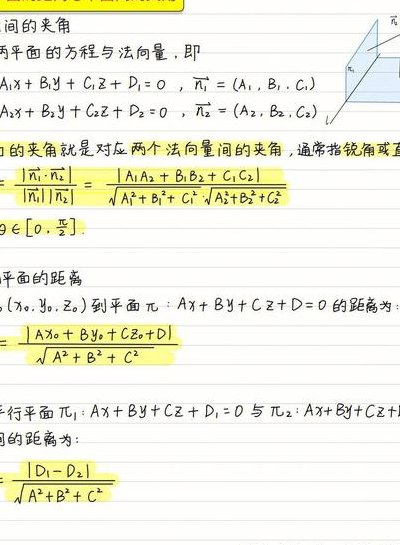 间的夹角
两平面的方程与法向量，即
A₁x + B₁y + C₁z + D₁ = 0 , n₁⃗ = (A₁, B₁, C₁)
A₂x + B₂y + C₂z + D₂ = 0 , n₂⃗ = (A₂, B₂, C₂)
π₁
的夹角就是对应两个法向量间的夹角，通常指锐角或
= |n₁⃗·n₂⃗| / |n₁⃗||n₂⃗| = |A₁A₂ + B₁B₂ + C₁C₂| / √(A₁²+B₁²+C₁²)·√(A₂²+B₂²+C₂²)
θ ∈ [0, π/2].
平面的距离
(x₀, y₀, z₀) 到平面 π : Ax + By + Cz + D = 0 的距离为:
= |Ax₀ + By₀ + Cz₀ + D| / √(A² + B² + C²)
行平面 π₁: Ax + By + Cz + D₁ = 0 与 π₂: Ax + By + Cz +
间的距离为:
= |D₁ - D₂| / √(A² + B² + C²)